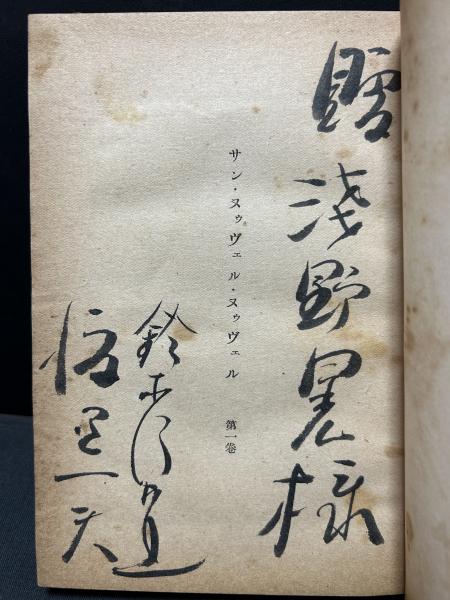 贈 浅野晃様
サン・ヌゥヴェル・ヌゥヴェル 第一巻
鈴木信太郎
渡辺一夫